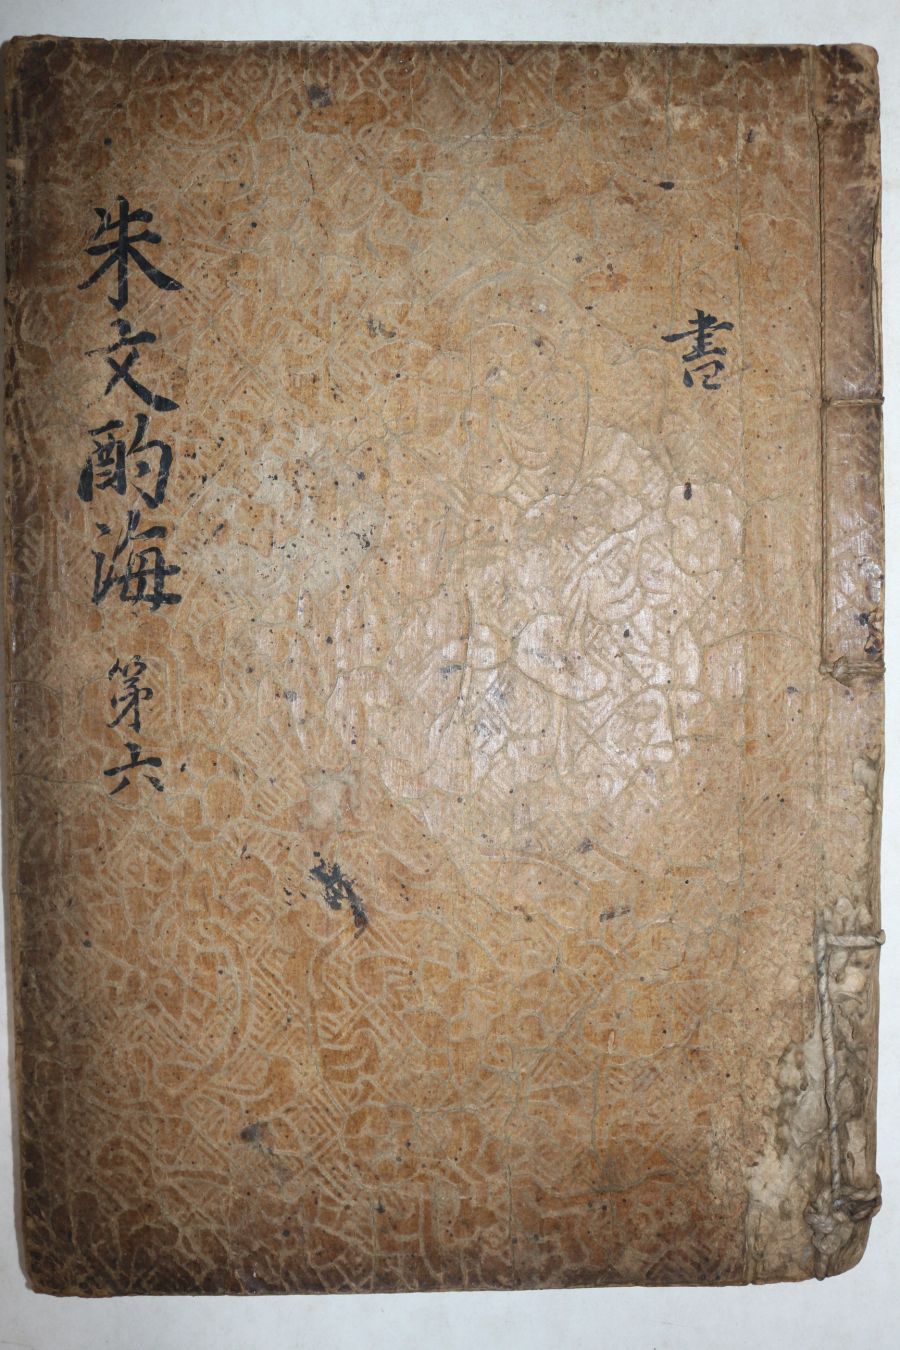 書
朱文酌海 第六